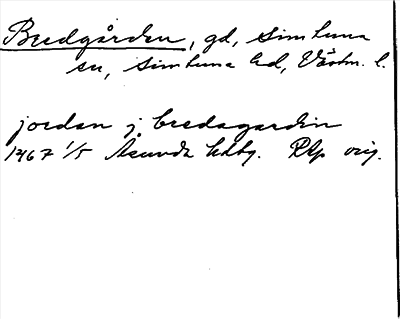 Bredgården, gd, Simtuna
sn, Simtuna hd, Västm. l.
jordan j bredagardin
1467 1/5 Åsunda hdbg. RAp orig.